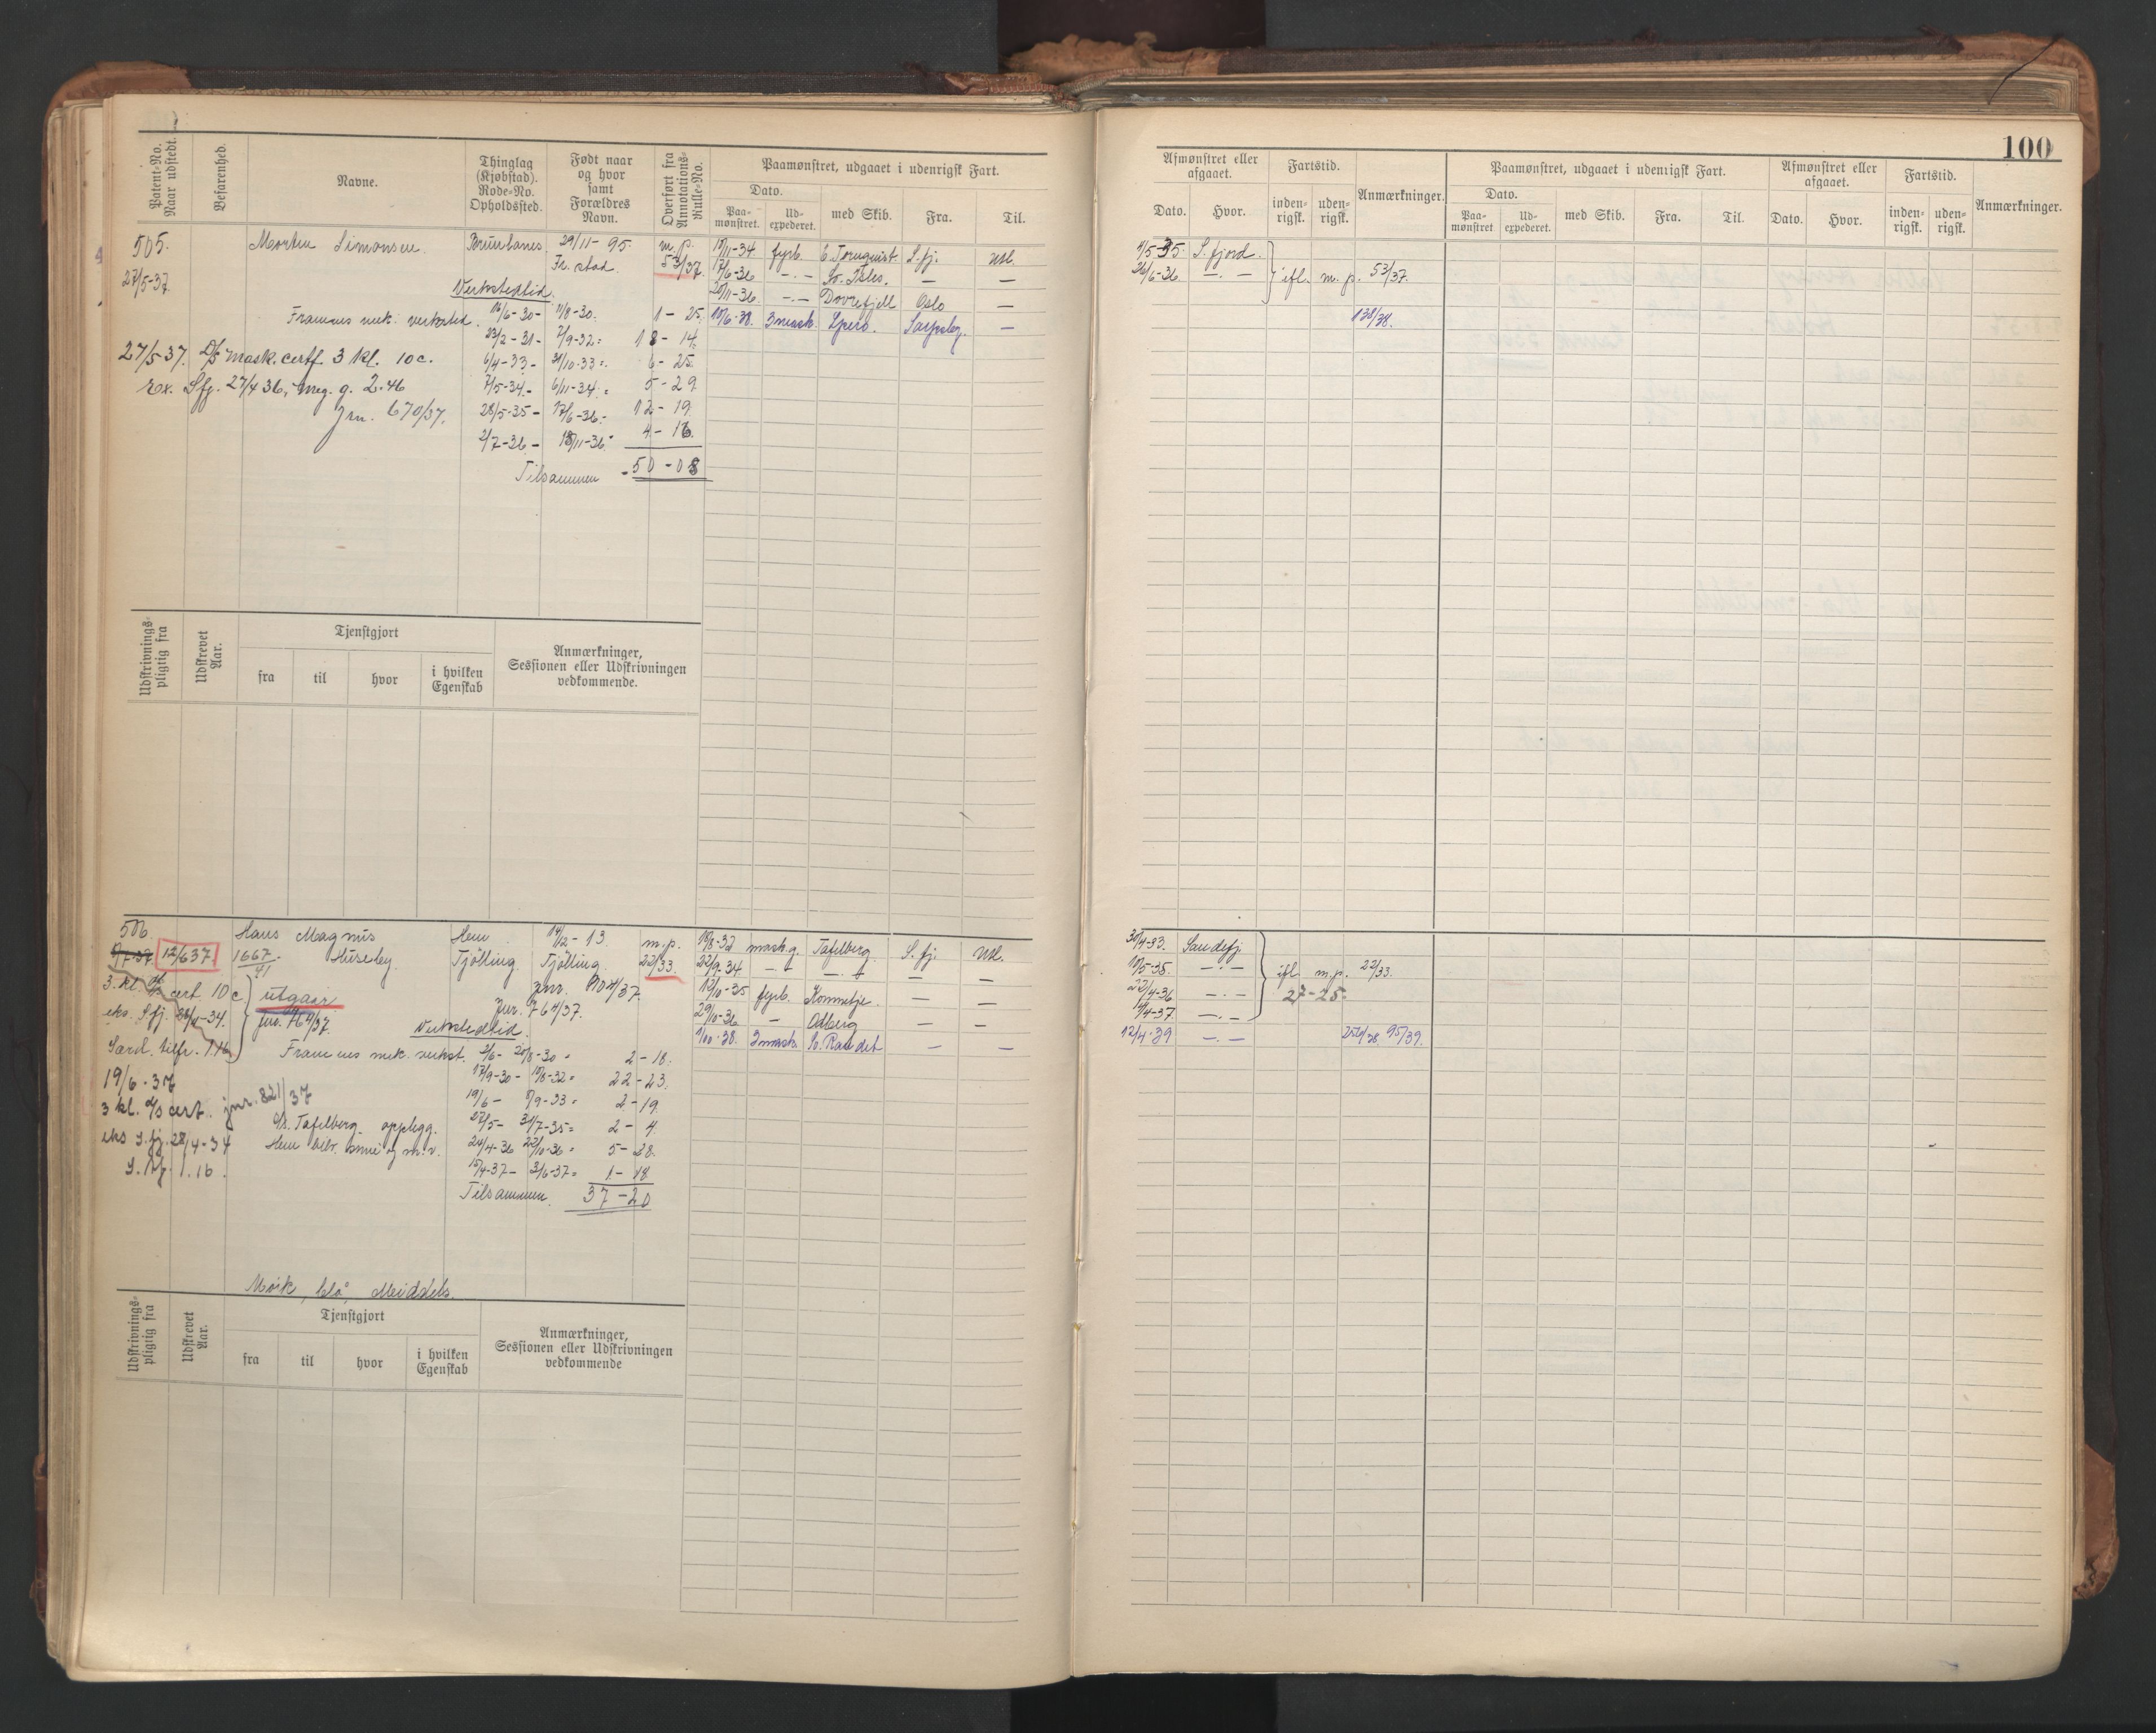 100
Patent-No. Naar udstedt.
Befarenhed.
Navne.
Thinglag (Kjøbstad). Rode-No. Opholdssted.
Født naar og hvor samt Forældres Navn.
Overført fra Annotations-Rulle-No.
Paamønstret, udgaaet i udenrigsk Fart.
Dato.
Paa-mønstret.
Ud-expederet.
med Skib.
Fra.
Til.
Afmønstret eller afgaaet.
Dato.
Hvor.
Fartstid.
inden-rigsk.
uden-rigsk.
Anmærkninger.
Paamønstret, udgaaet i udenrigsk Fart.
Dato.
Paa-mønstret
Ud-expederet.
med Skib.
Fra.
Til.
Afmønstret eller afgaaet.
Dato.
Hvor.
Fartstid.
inden-rigsk.
uden-rigsk.
Anmærkninger.
505. Morten Simonsen. 29/11-95 m.p. 10/11-34 fyrb. C. Tornquist S.fj. Utl. 4/5-35 S.fjord.
27/5-37. Fr.stad. 53/37. 17/6-36 -.- So. Isles. — — 26/6-36 -.- ifl. m.p. 53/37.
Verkstedtid. 20/11-36 -.- Dovrefjell Oslo —
Framnæs mek. verksted. 16/6-30- 11/8-30. 1-25. 10/6-38. 3 mask. Spero. Sarpsbg. — 138/38.
23/2-31- 7/9-32= 18-14.
27/5-37. D/S mask. certf. 3 kl. 10c. 6/4-33- 31/10-33=. 6-25.
Ex. Sfj. 27/4 36, meg. g. 2.46 7/5-34- 6/11-34.= 5-29.
Jrn. 670/37. 28/5-35- 17/6-36- 12-19.
2/7-36- 18/11-36= 4-16.
Tilsammen 50-08
Udskrivnings-pligtig fra
Udskrevet Aar.
Tjenstgjort
fra
til
hvor
i hvilken Egenskab
Anmærkninger, Sessionen eller Udskrivningen vedkommende.
506 Hans Magnus Hem 14/2-13. m.p. 10/8-32 mask.g. Tafelberg. S.fj. Utl. 30/4-33. Sandefj.
12/6 37. 1667/41 Huseby. Tjølling. Tjølling. 22/33. 22/9-34 -.- -.- — — 10/5-35. -.- ifl. m.p. 22/33.
3. kl. cert. 10 c utgaar 12/10-35 fyrb. Kommetje. — — 22/4-36 -.- 27-25=
eks. Sfj. 28/4-34. Jnr. 764/37. Jnr. 764/37. 29/10-36 — Odberg — — 4/4-37. -.-
Særd. tilfr. 1.16 Verkstedtid. 3 mask. So. Raudet — — 12/4-39 -.- 95/39.
Framnæs mek. verkst. 2/6- 20/8-30= 2-18.
19/6-37 17/9-30- 10/8-32= 22-23.
3 kl. d/s cert. jnr. 821/37 19/6- 8/9-33= 2-19.
Tafelberg opplegg. 27/5- 31/7-35= 2-4.
eks S.fj. 28/4-34 24/4-36 22/10-36= 5-28.
1.16. 15/4-37- 3/6-37= 1-18.
Tilsammen 37-20
Mørk, blå, Middels.
Udskrivnings-pligtig fra
Udskrevet Aar.
Tjenstgjort
fra
til
hvor
i hvilken Egenskab
Anmærkninger, Sessionen eller Udskrivningen vedkommende